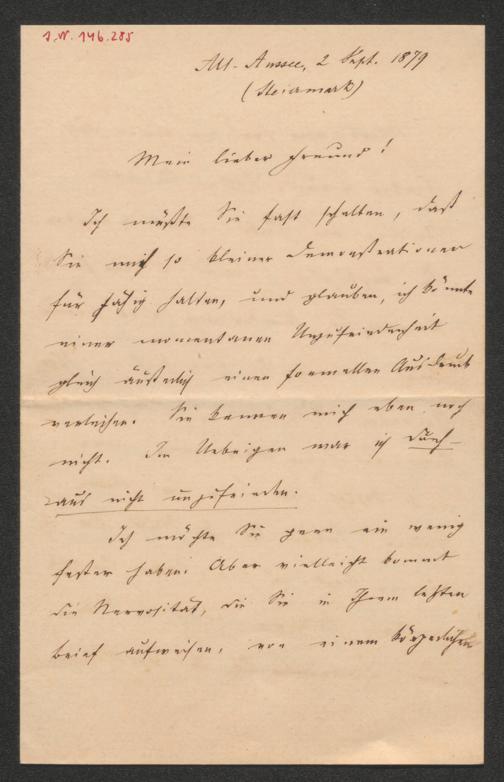 I.N. 146.285
Alt-Aussee, 2 Sept. 1879
(Steiermark)
Mein lieber Freund!
Ich müßte Sie fast schelten, daß
Sie mich so kleiner Demonstrationen
für fähig halten, und glauben, ich könnte
einer momentanen Unzufriedenheit
gleich äußerlich einen formellen Ausdruck
verleihen. Sie kennen mich eben noch
nicht. Im Uebrigen war ich durch-
aus nicht unzufrieden.
Ich möchte Sie gern ein wenig
fester haben. Aber vielleicht kommt
die Nervosität, die Sie in Ihrem letzten
Brief aufweisen, von einem körperlichen